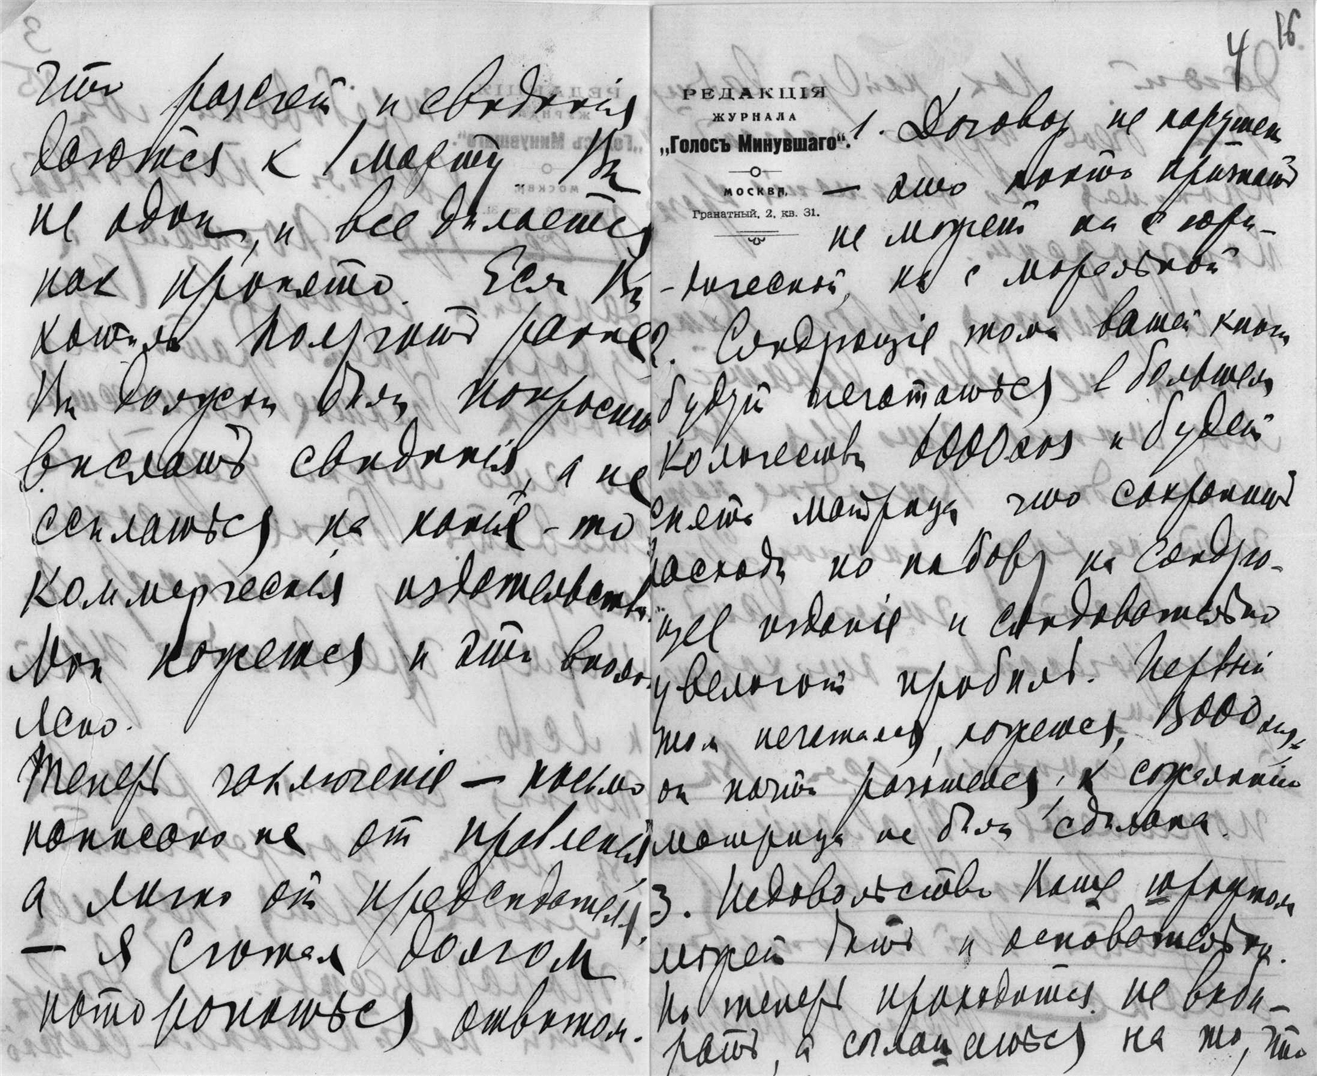 что расчет и сведенія
даются к 1 марту. Вы
не один, и все делается
как принято. Если Вы
хотели получить ранее
Вы должны были попросить
выслать сведенія, а не
ссылаться на какія-то
коммерческія издательства.
Мне кажется и это вполне
ясно.
Теперь заключеніе — письмо
написано не от правленія
а лично от председателя,
— Я считал долгом
поторопиться ответом.
4 16
РЕДАКЦІЯ
ЖУРНАЛА
„Голосъ Минувшаго".
МОСКВА,
Гранатный, 2, кв. 31.
1. Договор не нарушен
— это никто признать
не может ни с юри-
дической, ни с моральной
2. Следующіе тома вашей книги
будут печататься в большем
количестве 6000 экз и будет
снята матрица что сократит
расходы по набору на следую-
щее изданіе и следовательно
увеличит прибыль. Первый
том печатался, кажется, 3000 экз
он почти разошелся, к сожаленію
матрица не была сделана.
3. Недовольство Ваше
может быть и основательно.
Но теперь приходится не выби-
рать, а соглашаться на то, что